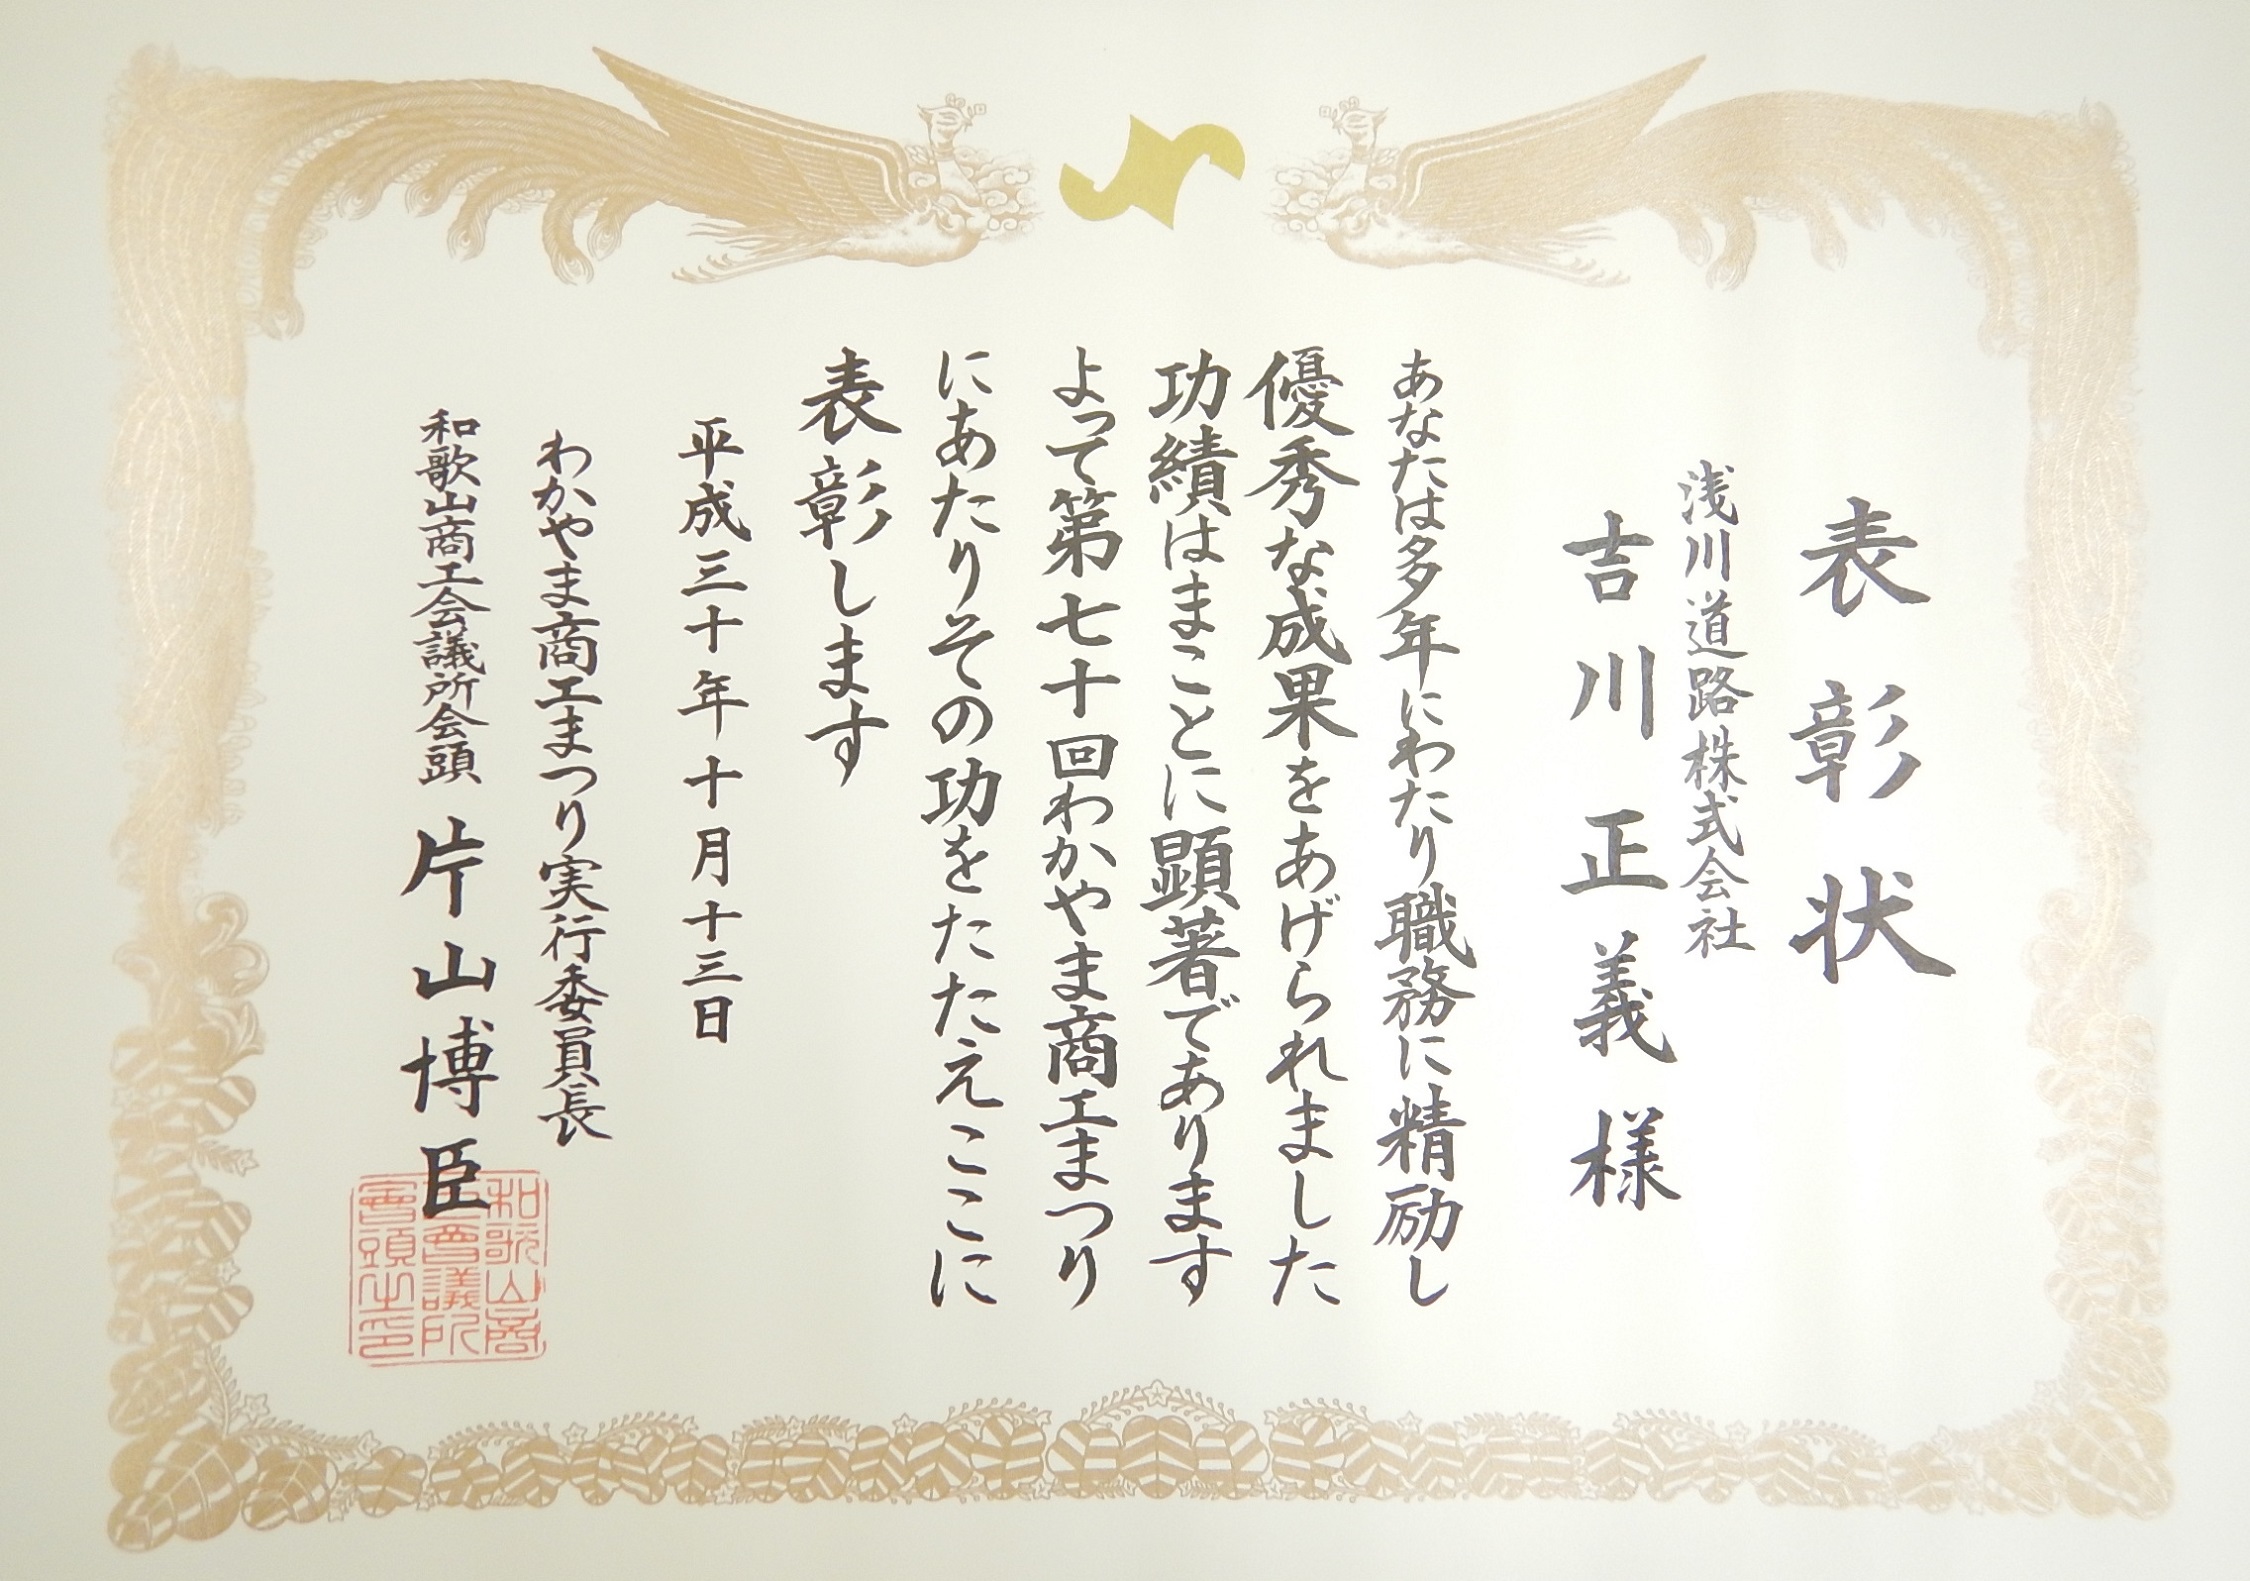 表彰状
浅川道路株式会社
吉川正義様
あなたは多年にわたり職務に精励し
優秀な成果をあげられました
功績はまことに顕著であります
よって第七十回わかやま商工まつり
にあたりその功をたたえここに
表彰します
平成三十年十月十三日
わかやま商工まつり実行委員長
和歌山商工会議所会頭 片山博臣
和歌山商
工會議所
會頭之印